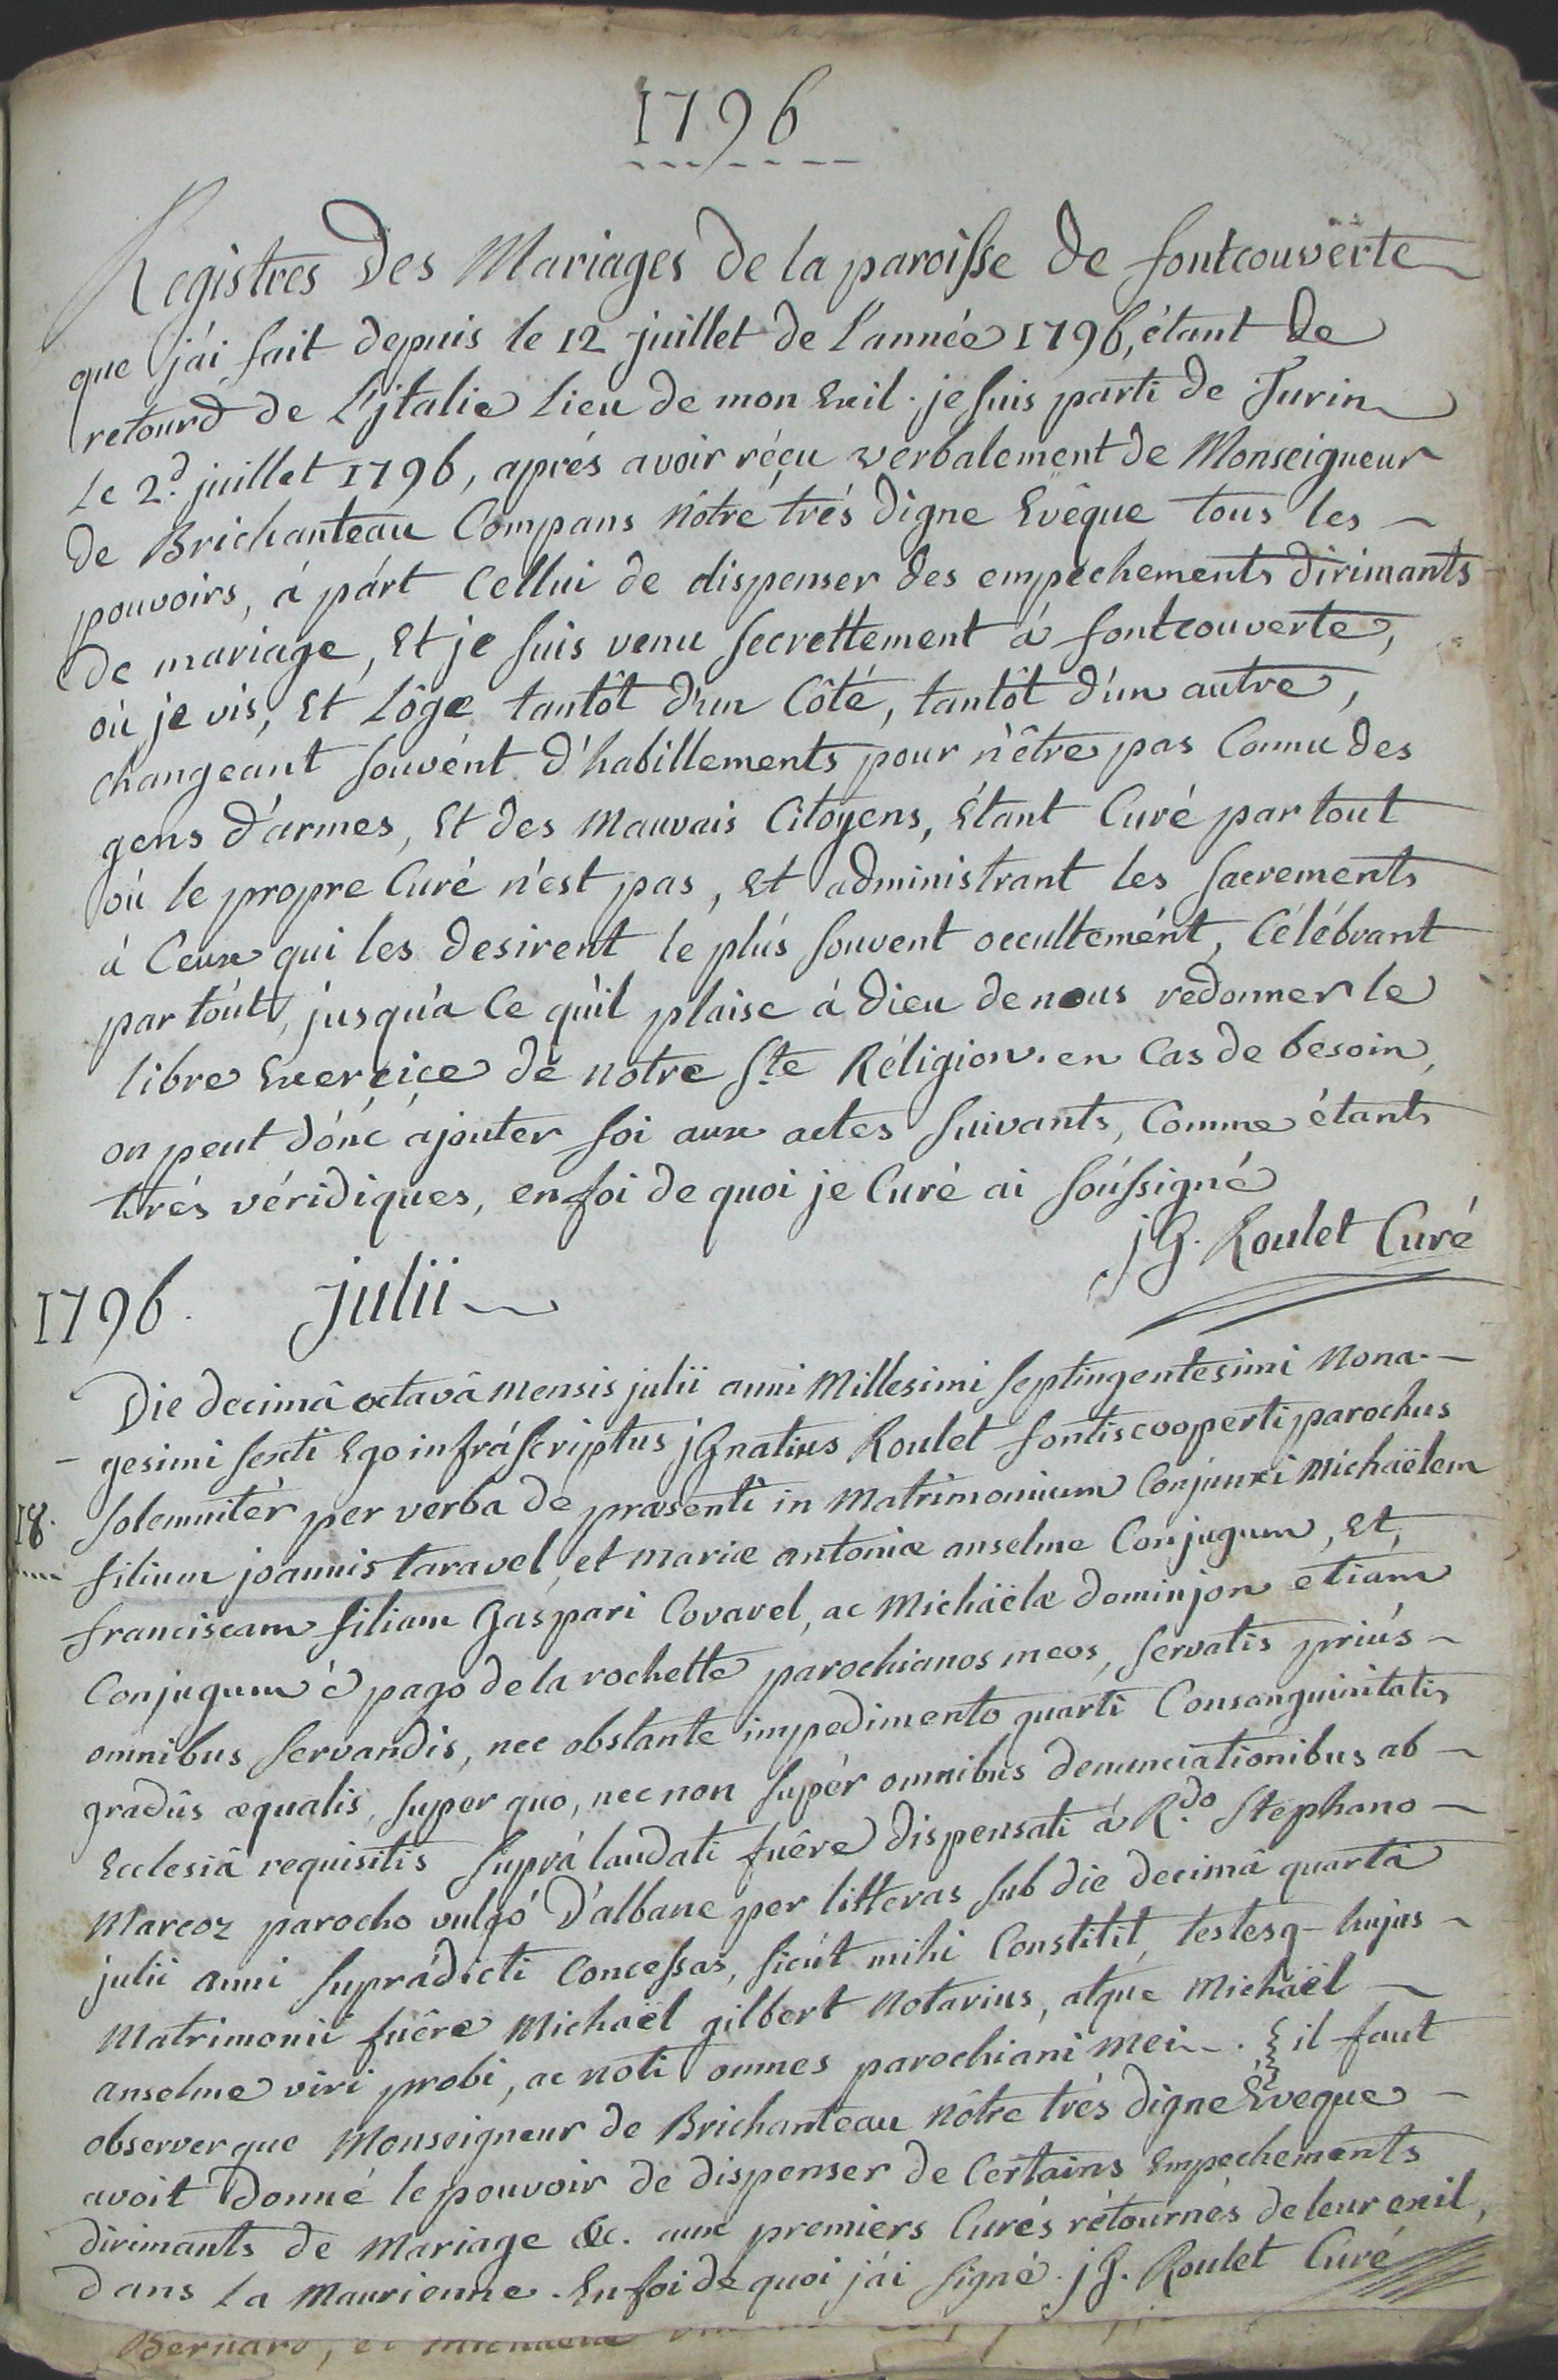 1796
Registres Des Mariages de la paroisse de fontcouverte
que j'ai fait depuis le 12 juillet de L'année 1796, étant de
retourd de L'jtalie Lieu de mon Exil. je suis parti de Turin
Le 2.d juillet 1796, aprés avoir réçu verbalement de Monseigneur
de Brichanteau Compans nôtre trés digne Evêque tous les -
pouvoirs, à párt Cellui de dispenser des empechements dirimants
de mariage, Et je suis venu secrettement à fontcouverte,
où je vis, Et Lôge tantôt d'un Côté, tantôt d'un autre,
changeant souvént d'habillements pour n'être pas Connu des
gens d'armes, Et des Mauvais Citoyens, Étant Curé par tout
où le propre Curé n'est pas, Et administrant les sacrements
à Ceux qui les desirent le plús souvent occultemént, Célébrant
par tóút, jusqu'a Ce qu'il plaise à Dieu de nous redonner le
libre Exercice de notre Ste Réligion. en Cas de besoin,
on peut dónc ajouter foi aux actes suivants, Comme étants
trés véridiques, en foi de quoi je Curé ai soússigné
jG. Roulet Curé
1796. julii
Die decimâ octavâ Mensis julii anni Millesimi septingentesimi Nona-
- gesimi sexti Ego infráscriptus jGnatius Roulet fontiscooperti parochus
18. solemnitér per verba de præsenti in Matrimonium Conjunxi Michaëlem
filium joannis taravel, et mariæ antoniæ anselme Conjugum, Et,
franciscam filiam Gaspari Covarel, ac Michaëlæ dominjon etiam
Conjugum è pago de la rochette parochianos meos, servatis priús -
omnibus servandis, nec obstante impedimento quarti Consanguinitatis
gradûs æqualis, super quo, nec non supér omnibus denunciationibus ab -
Ecclesiâ requisitis súprá laudati fuêre dispensati à R.do Stephano -
Marcoz parocho vulgó D'albane per litteras sub die decimâ quartâ
julii anni suprádicti Concessas, sicút mihi Constitit, testesq- hujus -
Matrimonii fuêre Michaël gilbert Notarius, atque Michaël -
anselme viri probi, ac noti omnes parochiani Mei. il faut
observer que Monseigneur de Brichanteau Nôtre trés digne Eveque -
avoit Donné le pouvoir de dispenser de Certains Empechements
dirimants de Mariage &c. aux premiers Curés rétournés de leur exil,
dans La Maurienne. En foi de quoi j'ái signé. jG. Roulet Curé
Bernard, et